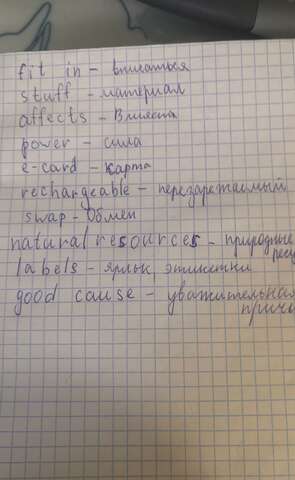 fit in – вписаться
stuff – материал
affects – Влияет
power – сила
e-card – карта
rechargeable – перезаряжаемый
swap – Обмен
natural resources – природные
ресу
labels – ярлык этикетки
good cause – уважительная
прича